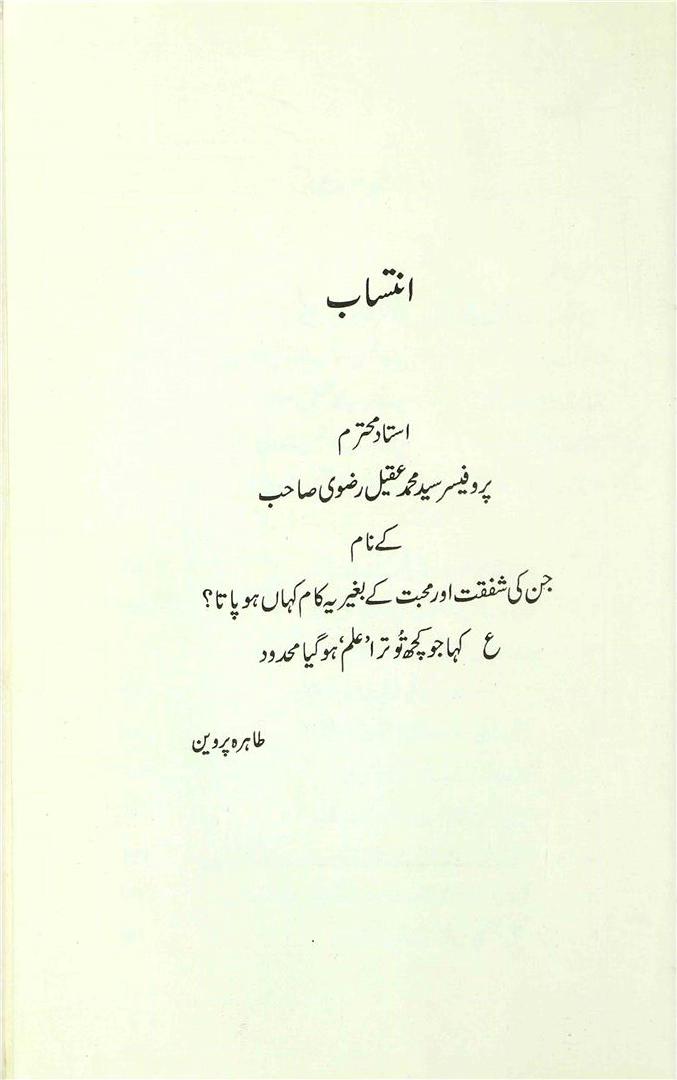 انتساب
استاد محترم
پروفیسر سید محمد عقیل رضوی صاحب
کے نام
جن کی شفقت اور محبت کے بغیر یہ کام کہاں ہو پاتا؟
ع کہا جو کچھ تُو ترا ’علم‘ ہو گیا محدود
طاہرہ پروین